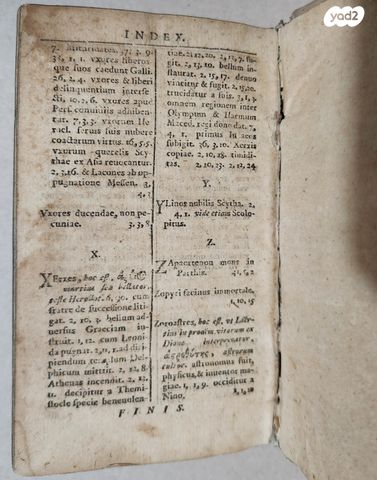 yad2
INDEX.
7. militaritades, 37. 3. 9.
38, 1. 1. vxores liberos-
que suos caedunt Galli.
26, 2. 4. vxores & liberi
delinquentium interfe-
cti, 10. 2. 6. vxores apud
Pert. conuiuiis adhiben-
tur. 7. 3. 3. vxorem He-
ricl. seruus suis nubere
coactarum virtus. 16, 5. 5.
vxorum querelis Scy-
thae ex Asia reuocantur.
2, 3. 16. & Lacones ab op-
pugnatione Messen. 3.
4. 3
Vxores ducendae, non pe-
cuniae. 3. 3, 8
X.
XErxes, hoc est,
martius seu bellator,
teste Herodot. 6, 30. cum
fratre de successione liti-
gat. 2, 10. 3. bellum ad-
versus Graeciam in-
struit. 1, 12. cum Leoni-
da pugnat. 2, 11. ad diri-
piendum templum Del-
phicum mittit. 2, 12, 8
Athenas incendit. 2, 12.
11. decipitur a Themi-
stocle specie beneuolen-
tiae. 2, 12, 20. 2, 13, 7. fu-
git. 2, 13. 10. bellum in-
staurat. 2, 15, 17. denuo
vincitur & fugit. 2,
trucidatur a suis. 3, 1, 3.
omnem regionem inter
Olympum & Haemum
Maced. regi donedat. 7,
4, 1. primus Iudaeos
subigit. 36, 3, 10. Xerxis
copiae. 2, 10, 18. timidi-
tas. 2, 10, 23. 2, 12, 24
Y.
YLinos nubilis Scytha. 2,
4. 1. vide etiam Scolo-
pitus.
Z.
ZApaortenon mons in
Parthis. 41, 5, 2
Zopyri facinus immortale,
1, 10, 15
Zoroastres, hoc est, vt Lae-
tius in prooem. vitarum ex
Dione interpretatur,
ἀστροθύτης, astrorum
cultor. astronomus fuit,
physicus, & inuentor ma-
giae. 1, 1, 9. occiditur a
Nino, 1, 1, 10
FINIS.